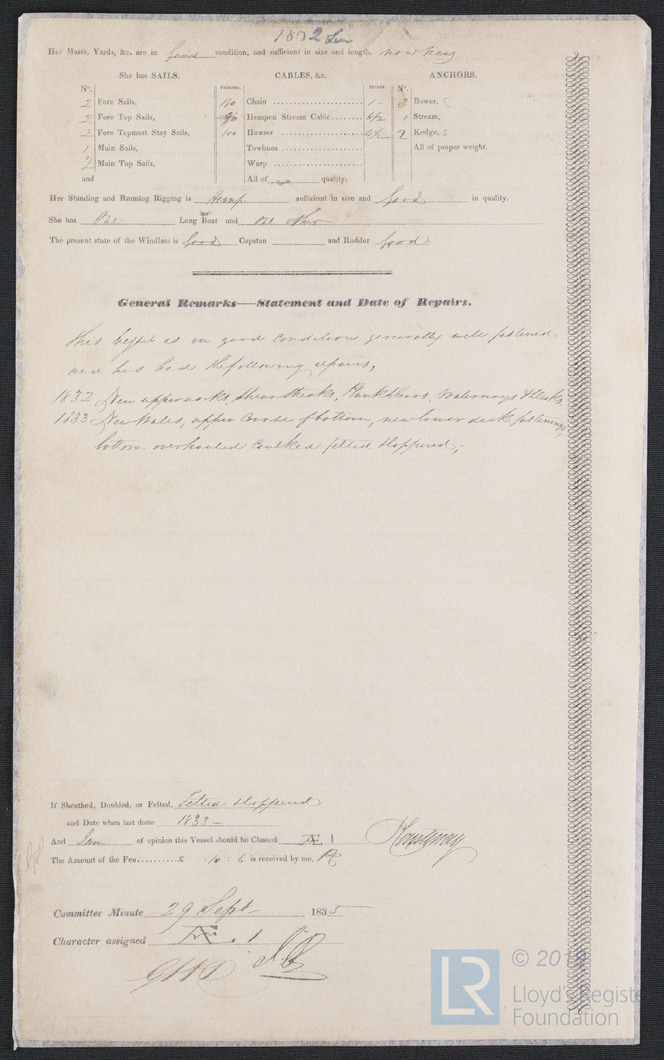 1802 Lon
Her Masts, Yards, &c. are in good condition, and sufficient in size and length.
She has SAILS. CABLES, &c. ANCHORS.
No. Fathoms. Inches. No.
2 Fore Sails, 160 Chain 1 3 Bower,
2 Fore Top Sails, 90 Hempen Stream Cable 6½ 1 Stream,
2 Fore Topmast Stay Sails, 100 Hawser 4½ 2 Kedge,
1 Main Sails, Towlines All of proper weight.
2 Main Top Sails, Warp
and All of quality.
Her Standing and Running Rigging is Hemp sufficient in size and good in quality.
She has One Long Boat and one other
The present state of the Windlass is good Capstan and Rudder good
General Remarks—Statement and Date of Repairs.
This vessel is in good condition generally well fastened
and has had the following repairs,
1832 New upperworks, shear strakes, Plankshears, Waterways & decks
1833 New Wales, upper course of bottom, new lower deck fastenings,
bottom overhauled caulked felted &coppered,
If Sheathed, Doubled, or Felted, Felted &coppered
and Date when last done 1833
And I am of opinion this Vessel should be Classed Æ 1
The Amount of the Fee £ : 10 : 6 is received by me,
Committee Minute 29 Sept 1835
Character assigned Æ 1
© 2019
LR
Lloyd's Register
Foundation